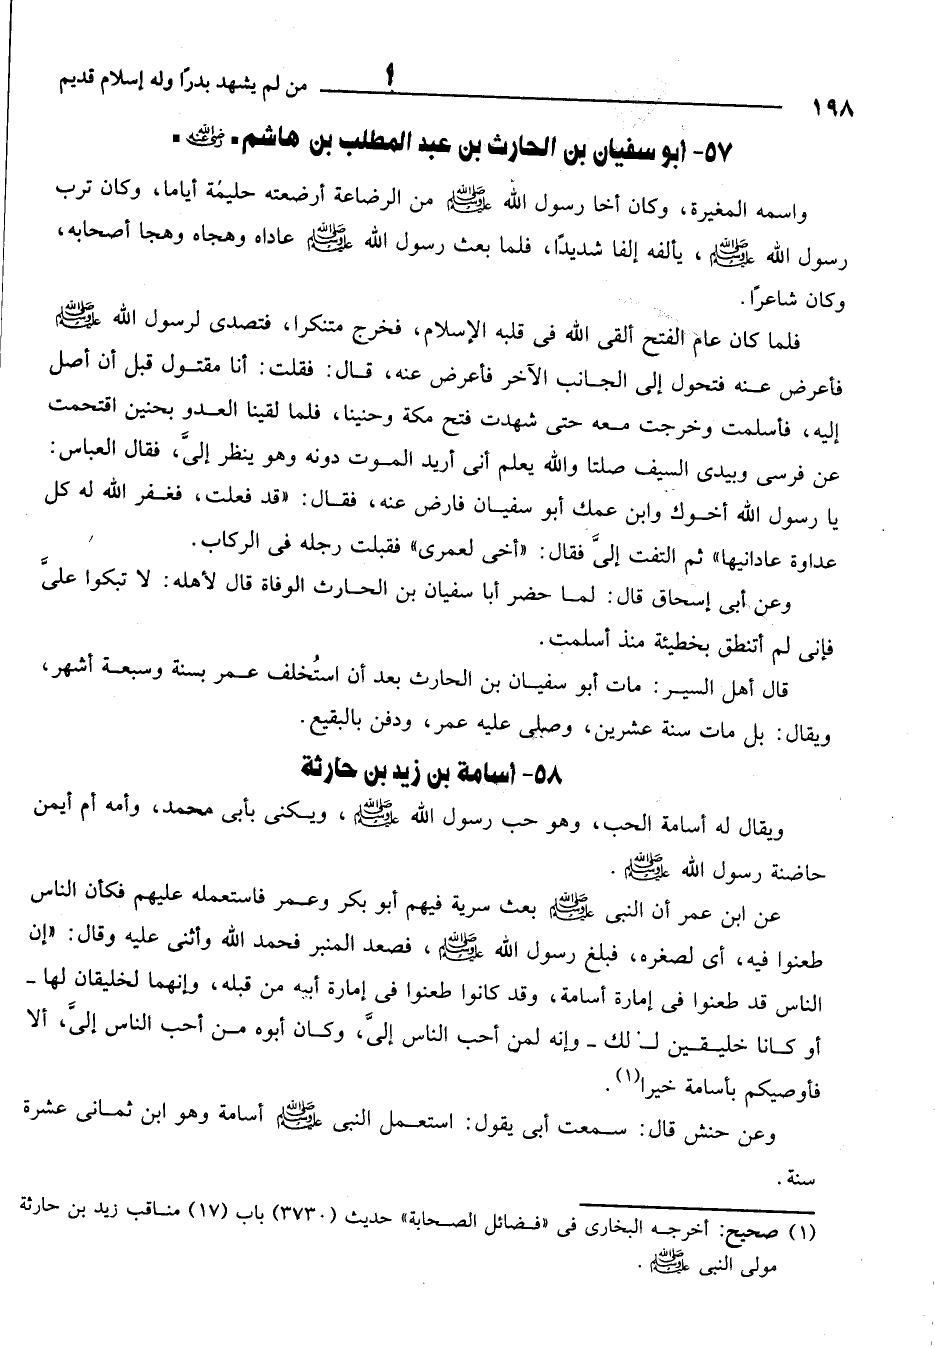 ١٩٨ من لم يشهد بدرًا وله إسلام قديم
٥٧- أبو سفيان بن الحارث بن عبد المطلب بن هاشم - رضي الله عنه -
واسمه المغيرة، وكان أخا رسول الله ﷺ من الرضاعة أرضعته حليمُة أياما، وكان ترب
رسول الله ﷺ ، يألفه إلفا شديدًا، فلما بعث رسول الله ﷺ عاداه وهجاه وهجا أصحابه،
وكان شاعرًا.
فلما كان عام الفتح ألقى الله فى قلبه الإسلام، فخرج متنكرا، فتصدى لرسول الله ﷺ
فأعرض عنه فتحول إلى الجانب الآخر فأعرض عنه، قال: فقلت: أنا مقتول قبل أن أصل
إليه، فأسلمت وخرجت معه حتى شهدت فتح مكة وحنينا، فلما لقينا العدو بحنين اقتحمت
عن فرسى وبيدى السيف صلتا والله يعلم أنى أريد الموت دونه وهو ينظر إلىَّ، فقال العباس:
يا رسول الله أخوك وابن عمك أبو سفيان فارض عنه، فقال: «قد فعلت، فغفر الله له كل
عداوة عادانيها» ثم التفت إلىَّ فقال: «أخى لعمرى» فقبلت رجله فى الركاب.
وعن أبى إسحاق قال: لما حضر أبا سفيان بن الحارث الوفاة قال لأهله: لا تبكوا علىَّ
فإنى لم أتنطق بخطيئة منذ أسلمت.
قال أهل السير: مات أبو سفيان بن الحارث بعد أن استُخلف عمر بسنة وسبعة أشهر،
ويقال: بل مات سنة عشرين، وصلى عليه عمر، ودفن بالبقيع.
٥٨- أسامة بن زيد بن حارثة
ويقال له أسامة الحب، وهو حب رسول الله ﷺ ، ويكنى بأبى محمد، وأمه أم أيمن
حاضنة رسول الله ﷺ .
عن ابن عمر أن النبى ﷺ بعث سرية فيهم أبو بكر وعمر فاستعمله عليهم فكأن الناس
طعنوا فيه، أى لصغره، فبلغ رسول الله ﷺ ، فصعد المنبر فحمد الله وأثنى عليه وقال: «إن
الناس قد طعنوا فى إمارة أسامة، وقد كانوا طعنوا فى إمارة أبيه من قبله، وإنهما لخليقان لها ـ
أو كانا خليقين لذلك ـ وإنه لمن أحب الناس إلىَّ، وكان أبوه من أحب الناس إلىَّ، ألا
فأوصيكم بأسامة خيرا(١).
وعن حنش قال: سمعت أبى يقول: استعمل النبى ﷺ أسامة وهو ابن ثمانى عشرة
سنة.
(١) صحيح: أخرجه البخارى فى «فضائل الصحابة» حديث (٣٧٣٠) باب (١٧) مناقب زيد بن حارثة
مولى النبى ﷺ .